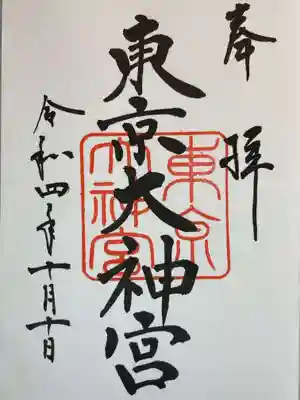 奉拝
東京大神宮
東京大神宮
令和四年十月十日